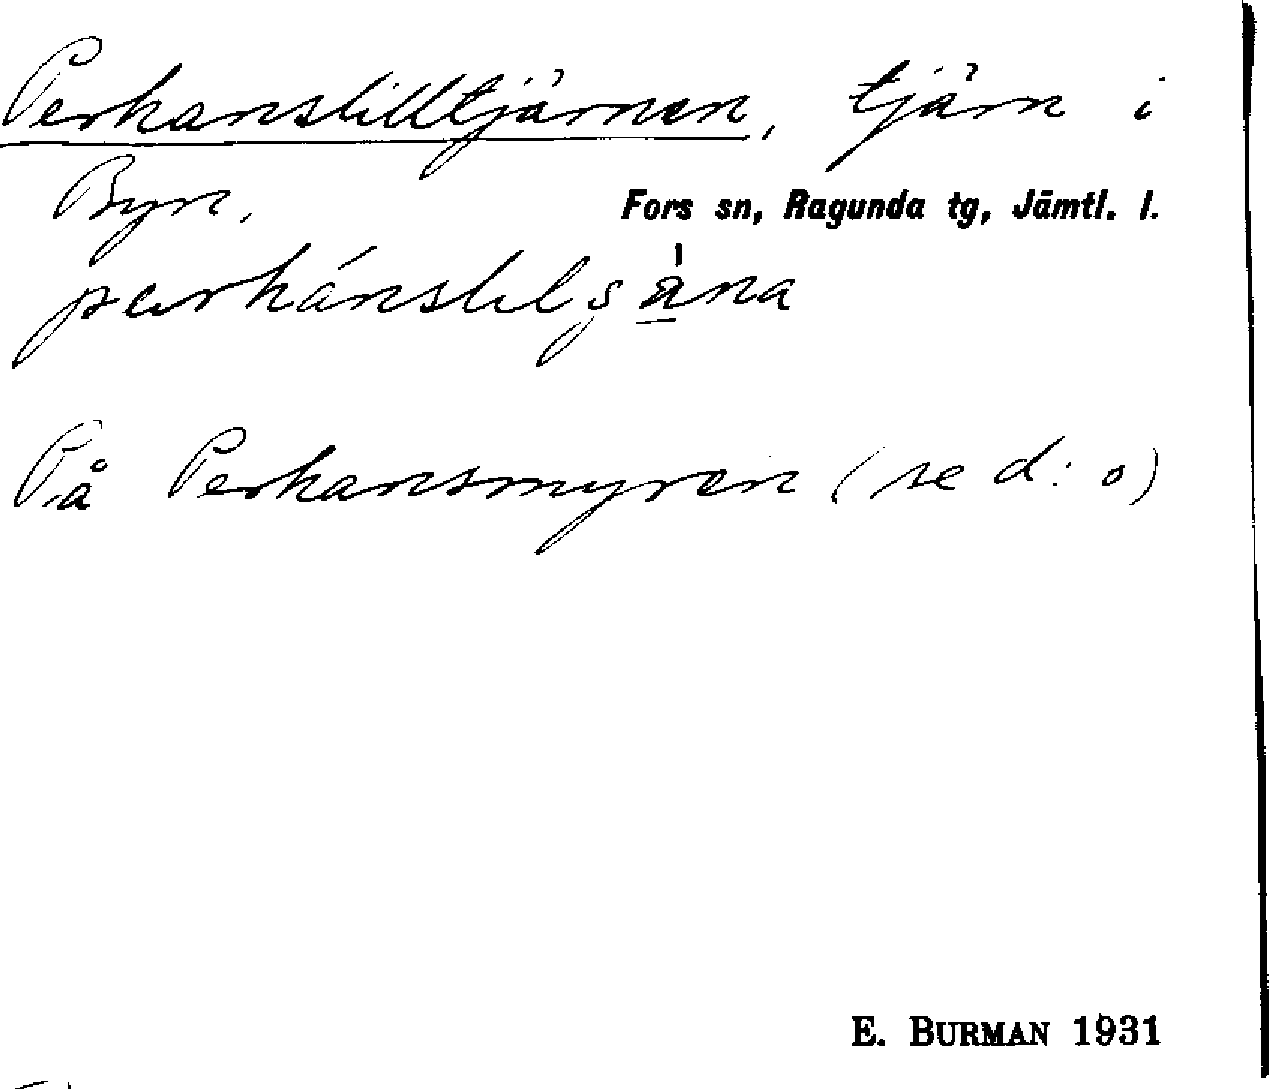 Perhanslilltjärnen, tjärn i
Byn. Fors sn, Ragunda tg, Jämtl. l.
På Perhansmyren (se d: o)
E. BURMAN 1931